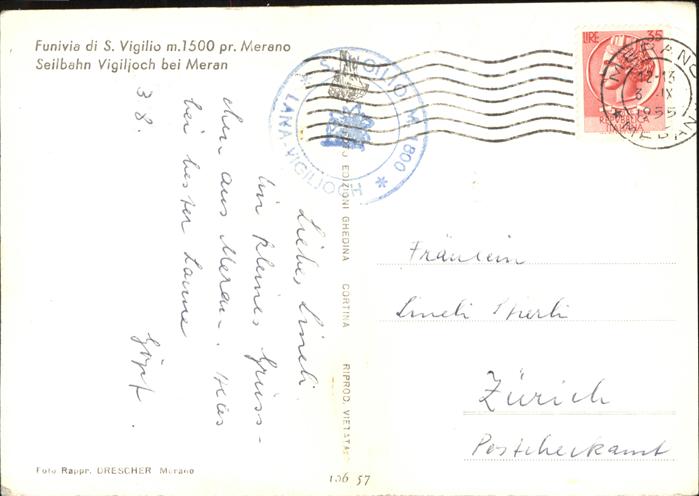 Funivia di S. Vigilio m.1500 pr. Merano
Seilbahn Vigiljoch bei Meran
S. VIGILIO M. 1800
* LANA-VIGILJOCH *
LIRE 35
REPUBBLICA
ITALIANA
MERANO
12-13
3 IX
1955
MERAN
3 8.
Liebes Lineli
Ein kleines Grüss-
chen aus Meran. Alles
bei bester Laune
EDIZIONI GHEDINA CORTINA RIPROD. VIETATA
Fräulein
Lineli
Zürich
Postcheckamt
Foto Rappr. DRESCHER Merano
106 57